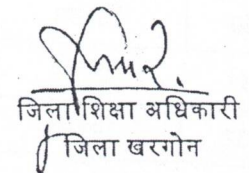 जिला शिक्षा अधिकारी
जिला खरगोन